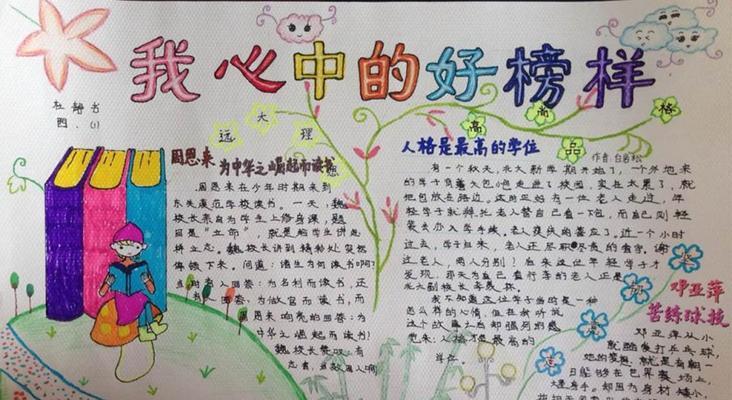 我心中的好榜样
四.(1)
远大理
周恩来 为中华之崛起而读书
周恩来在少年时期来到
东关模范学校读书。一天，魏
校长亲自为学生上修身课，题
目是“立命”，就是给学生讲怎
样立志。魏校长讲到精彩处突然
停顿下来。问道：诸生为何读书啊？
当时有人回答：为名利而读书，还
回答：为做官而读书，而
周恩来响亮的回答：为
中华之崛起而读书！
魏校长赞叹：有
志者，当效周生啊！
高高品格
人格是最高的学位
作者：白岩松
有一个秋天，北大新学期开始了，一个外地来
的学子背着大包小包走进了校园，实在太累了，就
把包放在路边。这时正好有一位老人走过，年
轻学子就拜托老人替自己看一下包，而自己则轻
装去办入学手续。老人爽快的答应了。近一个小时
过去，学子归来，老人还尽职尽责的看守。谢
过老人，两人分别！后来这位年轻学子才
发现，那天为自己看行李的老人正是
北大副校长季羡林。
我不知道这位学子当时是一种
怎么样的心情，但在我听说
这个故事之后却强烈的感
觉来：人格才是最高的
学位。
邓亚萍
苦练球技
邓亚萍从小
就酷爱打乒乓球，
她的梦想，就是有朝一
日能够在世界赛场上，
大显身手。却因为身材矮小，